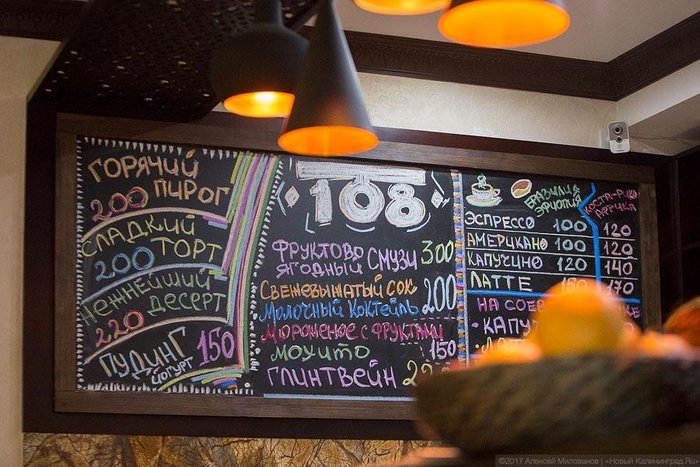 ГОРЯЧИЙ
200 ПИРОГ
СЛАДКИЙ
200 ТОРТ
НЕЖНЕЙШИЙ
220 ДЕСЕРТ
ПУДИНГ 150
ЙОГУРТ
108
ФРУКТОВО
ЯГОДНЫЙ СМУЗИ 300
СВЕЖЕВЫЖАТЫЙ СОК
МОЛОЧНЫЙ КОКТЕЙЛЬ 200
МОРОЖЕНОЕ С ФРУКТАМИ
МОХИТО 150
ГЛИНТВЕЙН
БРАЗИЛИЯ
ЭФИОПИЯ
КОСТА-РИКА
АФРИКА
ЭСПРЕССО 100 120
АМЕРИКАНО 100 120
КАПУЧИНО 120 140
ЛАТТЕ 170
НА СОЕВ
• КАПУ
©2017 Алексей Милованов | «Новый Калининград.Ru»